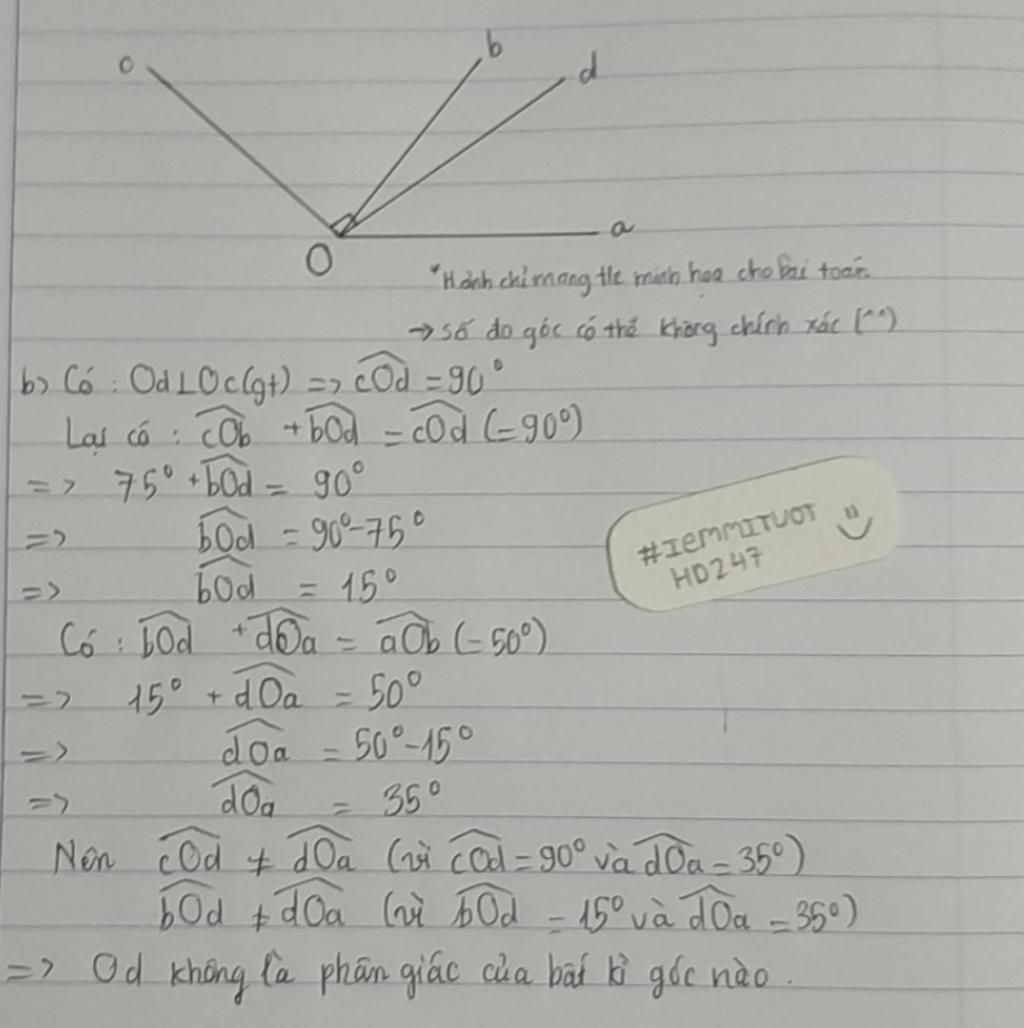 c
b
d
a
O
*Hình chỉ mang t/c minh họa cho bài toán
→ số đo góc có thể không chính xác (^^)
b) Có : Od⊥Oc(gt) => cOd = 90°
Lại có : cOb + bOd = cOd (= 90°)
=> 75° + bOd = 90°
=> bOd = 90° - 75°
=> bOd = 15°
#IEMMITUOT
HD247
Có : bOd + dOa = aOb (= 50°)
=> 15° + dOa = 50°
=> dOa = 50° - 15°
=> dOa = 35°
Nên cOd ≠ dOa (vì cOd = 90° và dOa = 35°)
bOd ≠ dOa (vì bOd = 15° và dOa = 35°)
=> Od không là phân giác của bất kì góc nào.